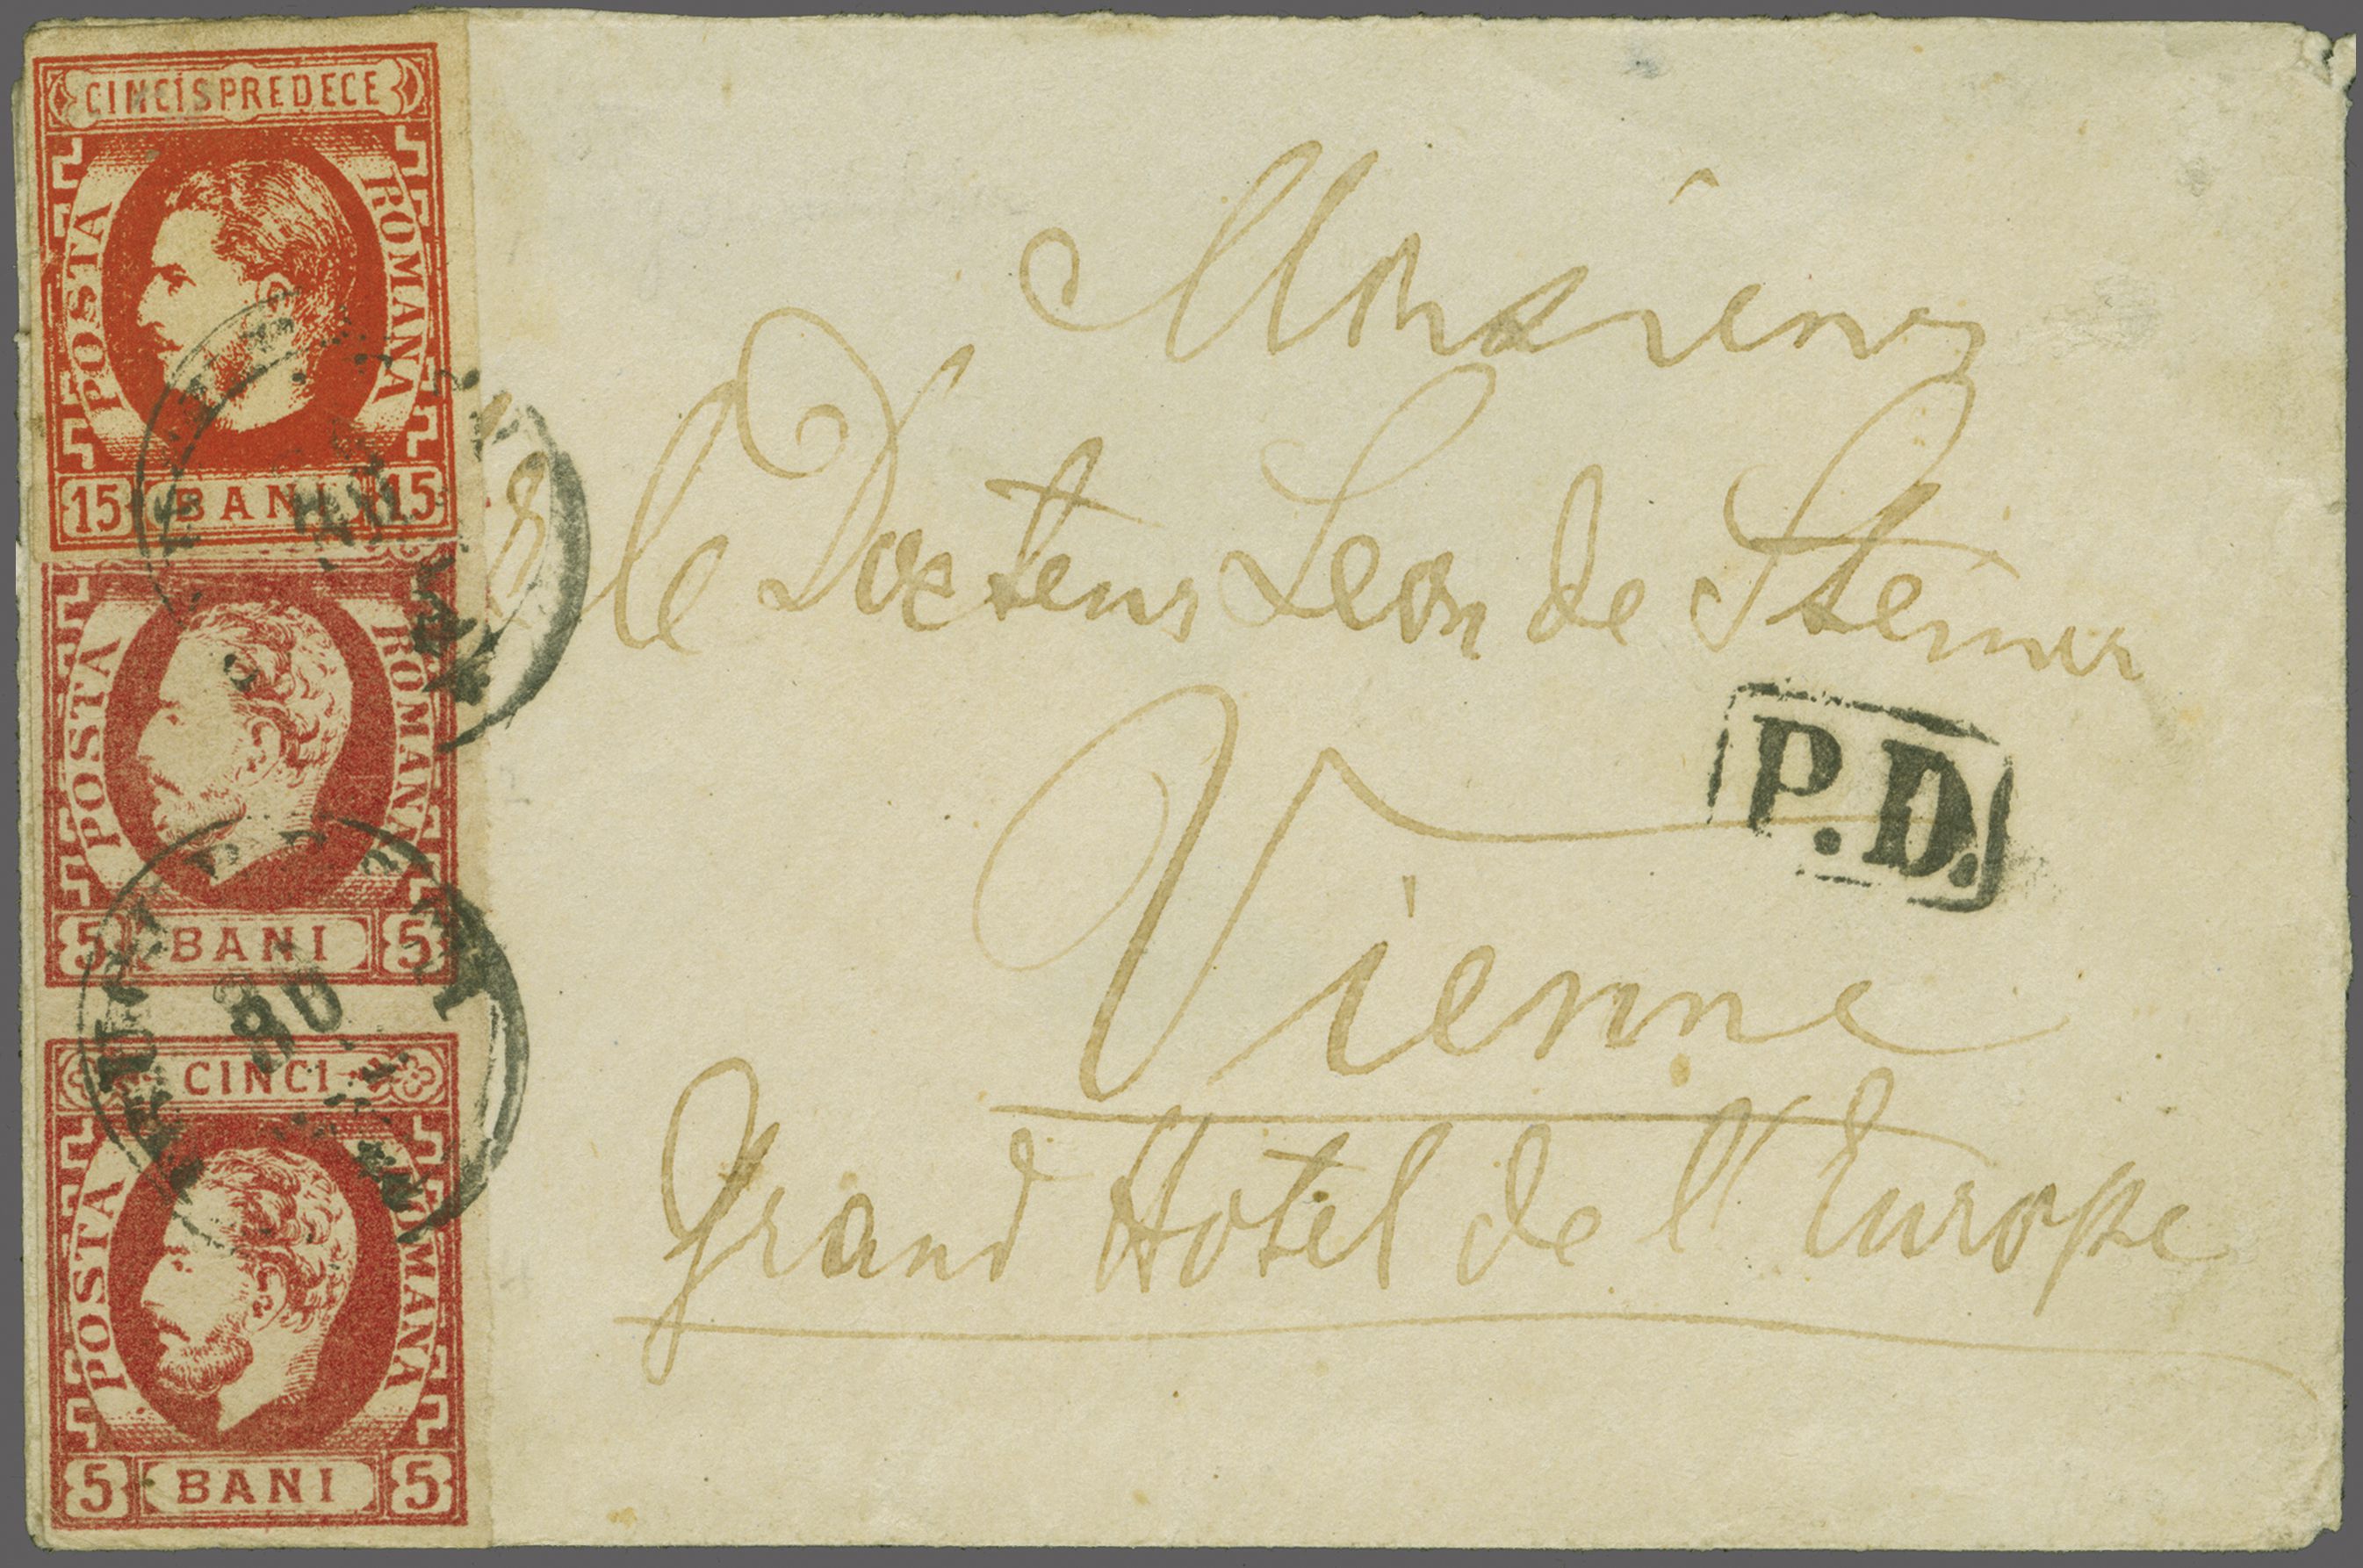 CINCISPREDECE
POSTA ROMANA
15 BANI 15
POSTA ROMANA
5 BANI 5
CINCI
POSTA ROMANA
5 BANI 5
30
Monsieur
le Docteur Leon de Steiner
P.D.
Vienne
Grand Hotel de l'Europe